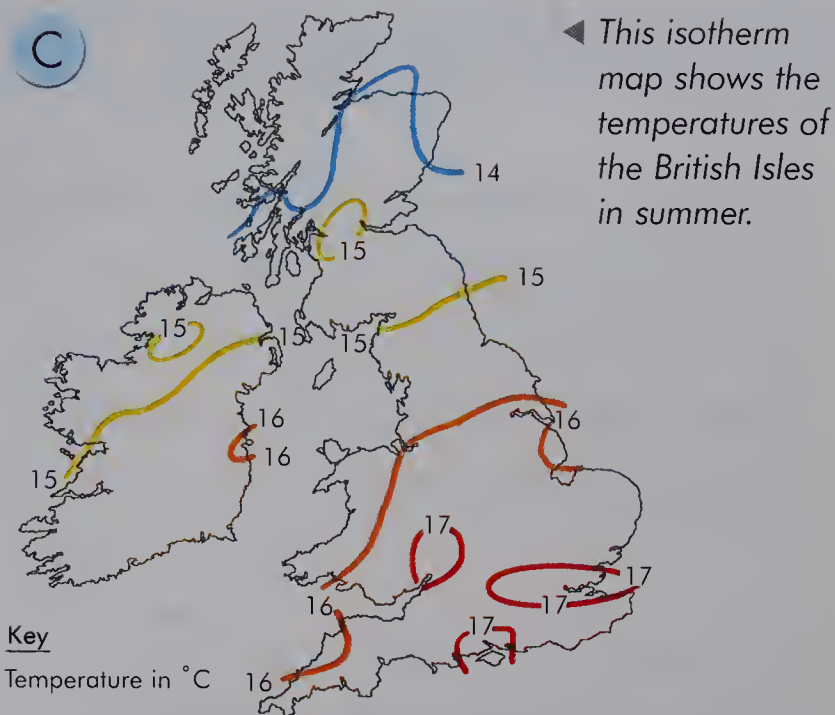 C
This isotherm
map shows the
temperatures of
the British Isles
in summer.
14
15
15
15
15
15
16
16
16
15
17
17
16
17
17
Key
Temperature in °C
16